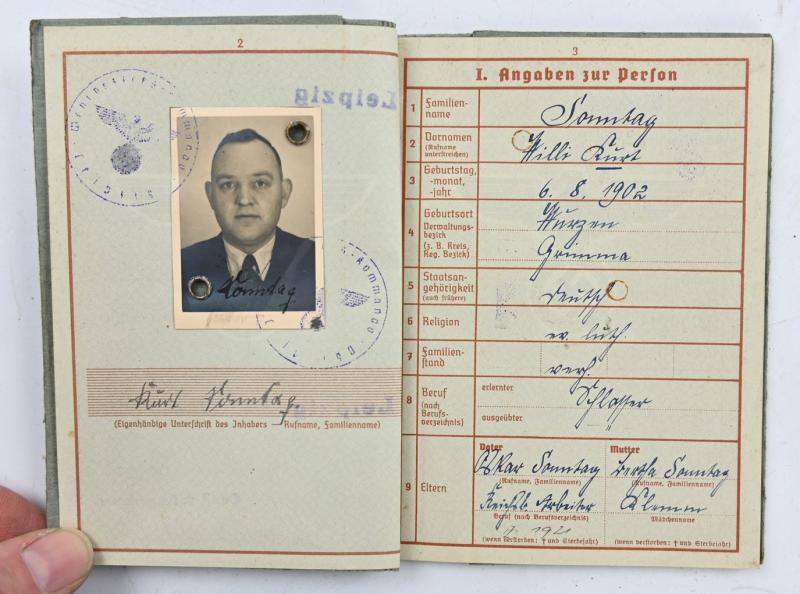 2
Leipzig
Sonntag
Kurt Sonntag
Leipzig
(Eigenhändige Unterschrift des Inhabers Rufname, Familienname)
3
I. Angaben zur Person
1 Familien-
name
Sonntag
2 Vornamen
(Rufname
unterstreichen)
Willi Kurt
3 Geburtstag,
-monat,
-jahr
6. 8. 1902
4 Geburtsort
Verwaltungs-
bezirk
(z. B. Kreis,
Reg. Bezirk)
Wurzen
Grimma
5 Staatsan-
gehörigkeit
(auch frühere)
Deutsch
6 Religion
ev. luth.
7 Familien-
stand
verh.
8 Beruf
(nach
Berufs-
verzeichnis)
erlernter
Schlosser
ausgeübter
9 Eltern
Vater
Oskar Sonntag
(Rufname, Familienname)
Reichsb. Arbeiter
Beruf (nach Berufsverzeichnis)
1921
(wenn verstorben: † und Sterbejahr)
Mutter
Bertha Sonntag
(Rufname, Familienname)
Klemm
Mädchenname
(wenn verstorben: † und Sterbejahr)